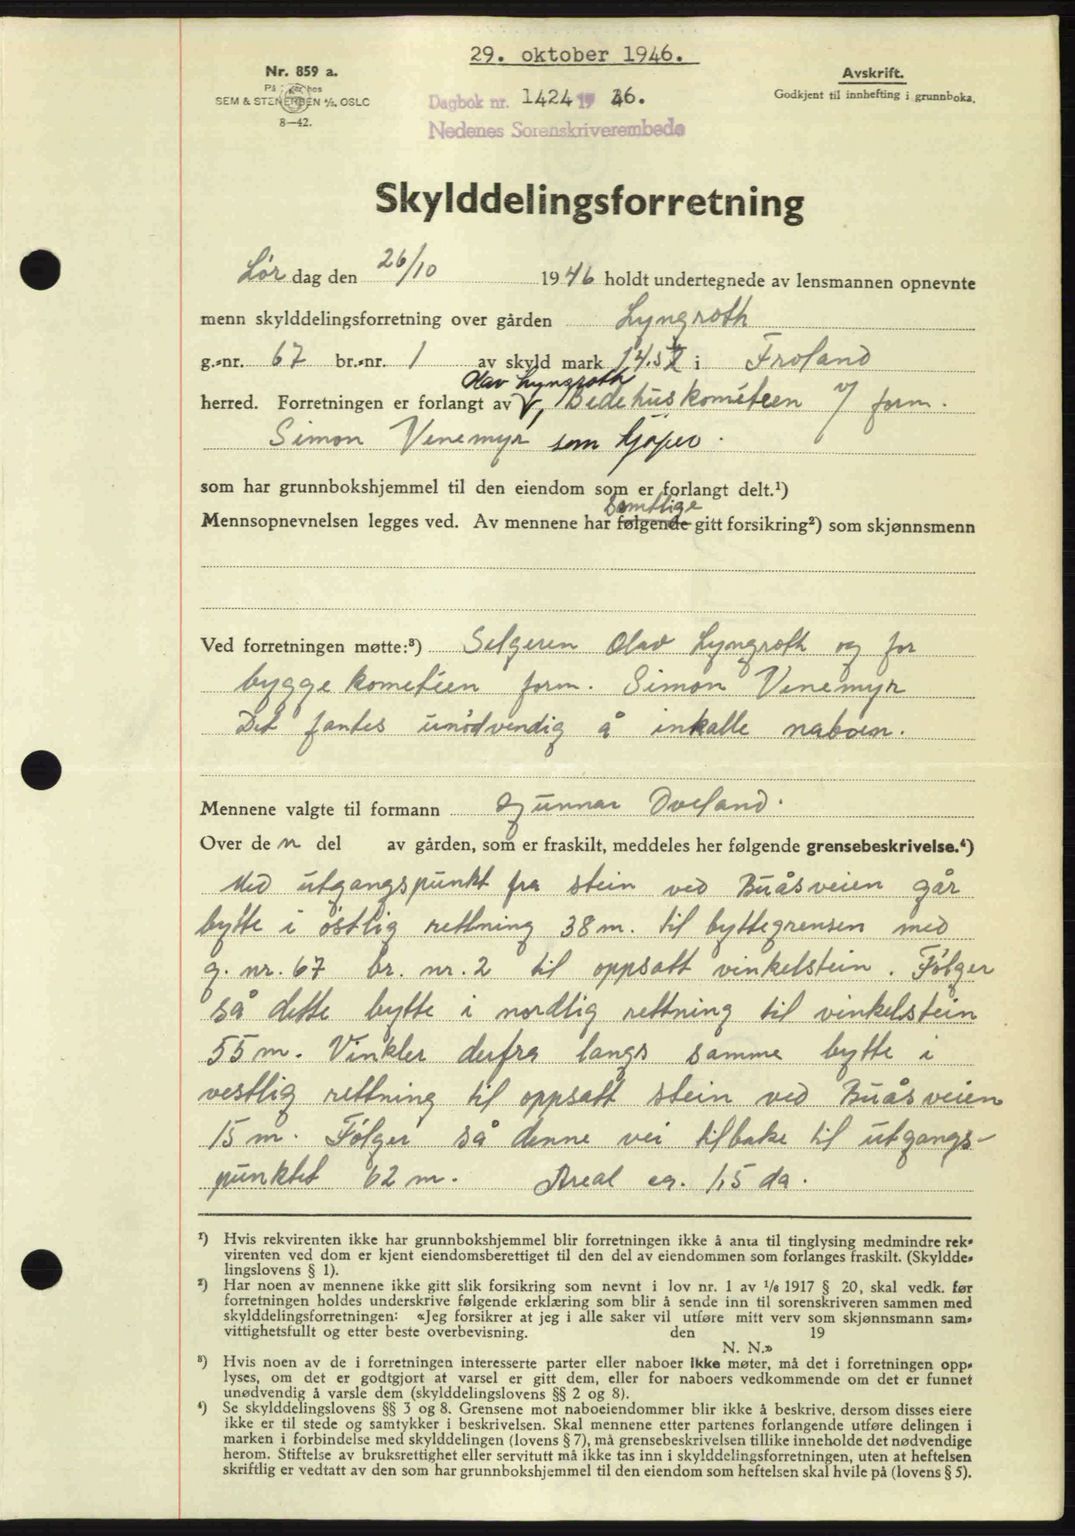 29. oktober 1946.
Nr. 859 a.
På lager hos
SEM & STENERSEN A/S, OSLO
8—42.
Avskrift.
Godkjent til innhefting i grunnboka.
Dagbok nr. 1424 19 46.
Nedenes Sorenskriverembede
Skylddelingsforretning
Lør dag den 26/10 1946 holdt undertegnede av lensmannen opnevnte
menn skylddelingsforretning over gården Lyngroth
g.-nr. 67 br.-nr. 1 av skyld mark i Froland
Olav Lyngroth
herred. Forretningen er forlangt av V, Bedehuskométeen v/ form.
Simon Venemyr som kjøper.
som har grunnbokshjemmel til den eiendom som er forlangt delt.¹)
Samtlige
Mennsopnevnelsen legges ved. Av mennene har følgende gitt forsikring²) som skjønnsmenn
Ved forretningen møtte:³) Selgeren Olav Lyngroth og for
byggekométéen form. Simon Venemyr
Det fantes unødvendig å inkalle naboen.
Mennene valgte til formann Gunnar Dveland.
Over de n del av gården, som er fraskilt, meddeles her følgende grensebeskrivelse.⁴)
Med utgangspunkt fra stein ved Buåsveien går
bytte i østlig rettning 38 m. til byttegrensen med
g. nr. 67 br. nr. 2 til oppsatt vinkelstein. Følger
så dette bytte i nordlig rettning til vinkelstein
55 m. Vinkler derfra langs samme bytte i
vestlig rettning til oppsatt stein ved Buåsveien
15 m. Følger så denne vei tilbake til utgangs-
punktet 62 m. Areal ca. 1,5 da.
¹) Hvis rekvirenten ikke har grunnbokshjemmel blir forretningen ikke å anta til tinglysing medmindre rek-
virenten ved dom er kjent eiendomsberettiget til den del av eiendommen som forlanges fraskilt. (Skyldde-
lingslovens § 1).
²) Har noen av mennene ikke gitt slik forsikring som nevnt i lov nr. 1 av 1/8 1917 § 20, skal vedk. før
forretningen holdes underskrive følgende erklæring som blir å sende inn til sorenskriveren sammen med
skylddelingsforretningen: «Jeg forsikrer at jeg i alle saker vil utføre mitt verv som skjønnsmann sam-
vittighetsfullt og etter beste overbevisning. den 19
N. N.»
³) Hvis noen av de i forretningen interesserte parter eller naboer ikke møter, må det i forretningen opp-
lyses, om det er godtgjort at varsel er gitt dem, eller for naboers vedkommende om det er funnet
unødvendig å varsle dem (skylddelingslovens §§ 2 og 8).
⁴) Se skylddelingslovens §§ 3 og 8. Grensene mot naboeiendommer blir ikke å beskrive, dersom disses eiere
ikke er til stede og samtykker i beskrivelsen. Skal mennene etter partenes forlangende utføre delingen i
marken i forbindelse med skylddelingen (lovens § 7), må grensebeskrivelsen tillike inneholde det nødvendige
herom. Stiftelse av bruksrettighet eller servitutt må ikke tas inn i skylddelingsforretningen, uten at heftelsen
skriftlig er vedtatt av den som har grunnbokshjemmel til den eiendom som heftelsen skal hvile på (lovens § 5).